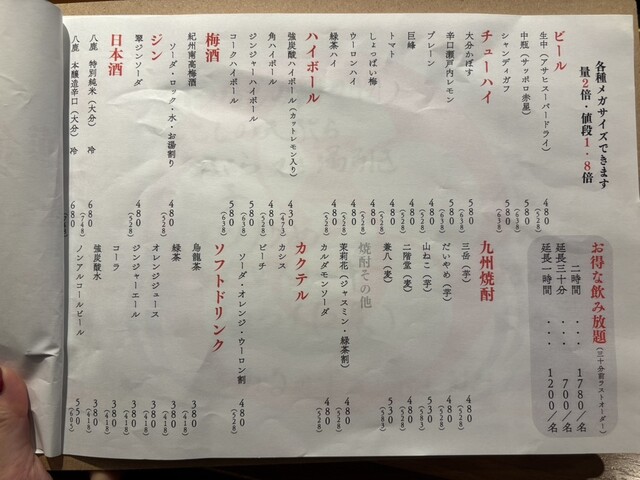 各種メガサイズできます
量2倍・値段1.8倍
ビール
生中（アサヒスーパードライ） 480（528）
中瓶（サッポロ赤星） 580（638）
シャンディガフ 580（638）
チューハイ
大分かぼす 580（638）
辛口瀬戸内レモン 580（638）
プレーン 480（528）
巨峰 480（528）
トマト 480（528）
しょっぱい梅 480（528）
ウーロンハイ 480（528）
緑茶ハイ 480（528）
ハイボール
強炭酸ハイボール（カットレモン入り） 430（473）
角ハイボール 480（528）
ジンジャーハイボール 480（528）
コークハイボール 580（638）
梅酒
紀州南高梅酒
ソーダ・ロック・水・お湯割り 480（528）
ジン
翠ジンソーダ 480（528）
日本酒
八鹿 特別純米（大分） 冷 680（748）
八鹿 本醸造辛口（大分） 冷 680
お得な飲み放題（三十分前ラストオーダー）
二時間 ... 1780/名
延長三十分 ... 700/名
延長一時間 ... 1200/名
九州焼酎
三岳（芋） 480（528）
だいやめ（芋） 480（528）
山ねこ（芋） 530（583）
二階堂（麦） 480（528）
兼八（麦） 530（583）
焼酎その他
茉莉花（ジャスミン・緑茶割） 480（528）
カルダモンソーダ 480（528）
カクテル
カシス
ピーチ
ソーダ・オレンジ・ウーロン割 480（528）
ソフトドリンク
烏龍茶 380（418）
緑茶 380（418）
オレンジジュース 380（418）
ジンジャーエール 380（418）
コーラ 380（418）
強炭酸水 380（418）
ノンアルコールビール 550（605）